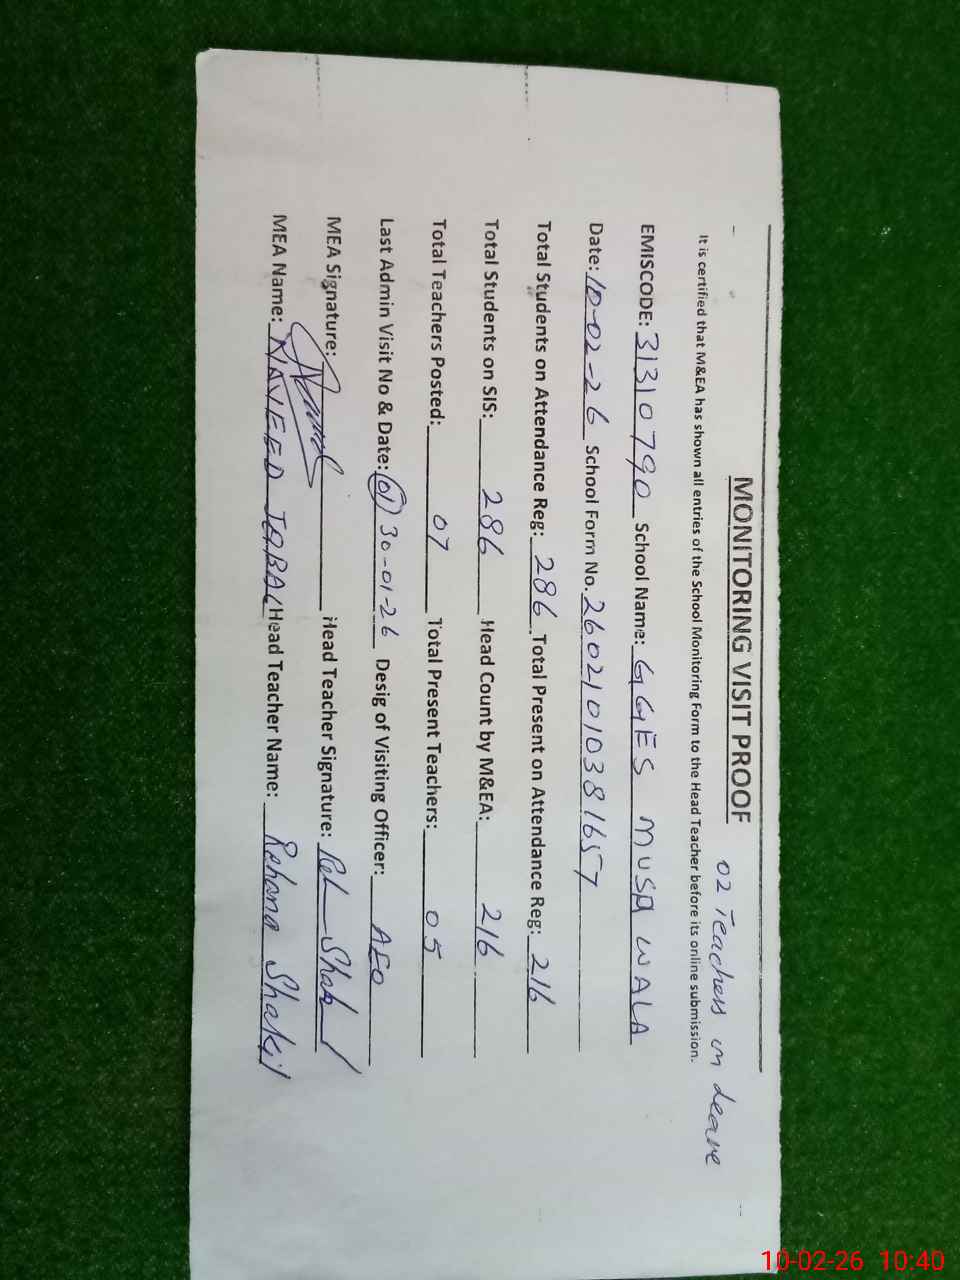 02 Teachers on leave
MONITORING VISIT PROOF
It is certified that M&EA has shown all entries of the School Monitoring Form to the Head Teacher before its online submission.
EMISCODE: 31310790 School Name: GGES MUSA WALA
Date: 10-02-26 School Form No. 2602101038 1657
Total Students on Attendance Reg: 286 Total Present on Attendance Reg: 216
Total Students on SIS: 286 Head Count by M&EA: 216
Total Teachers Posted: 07 Total Present Teachers: 05
Last Admin Visit No & Date: 01 30-01-26 Desig of Visiting Officer: AEO
MEA Signature: Head Teacher Signature:
MEA Name: NAVEED IQBAL Head Teacher Name: Rehana Shakil
10-02-26 10:40